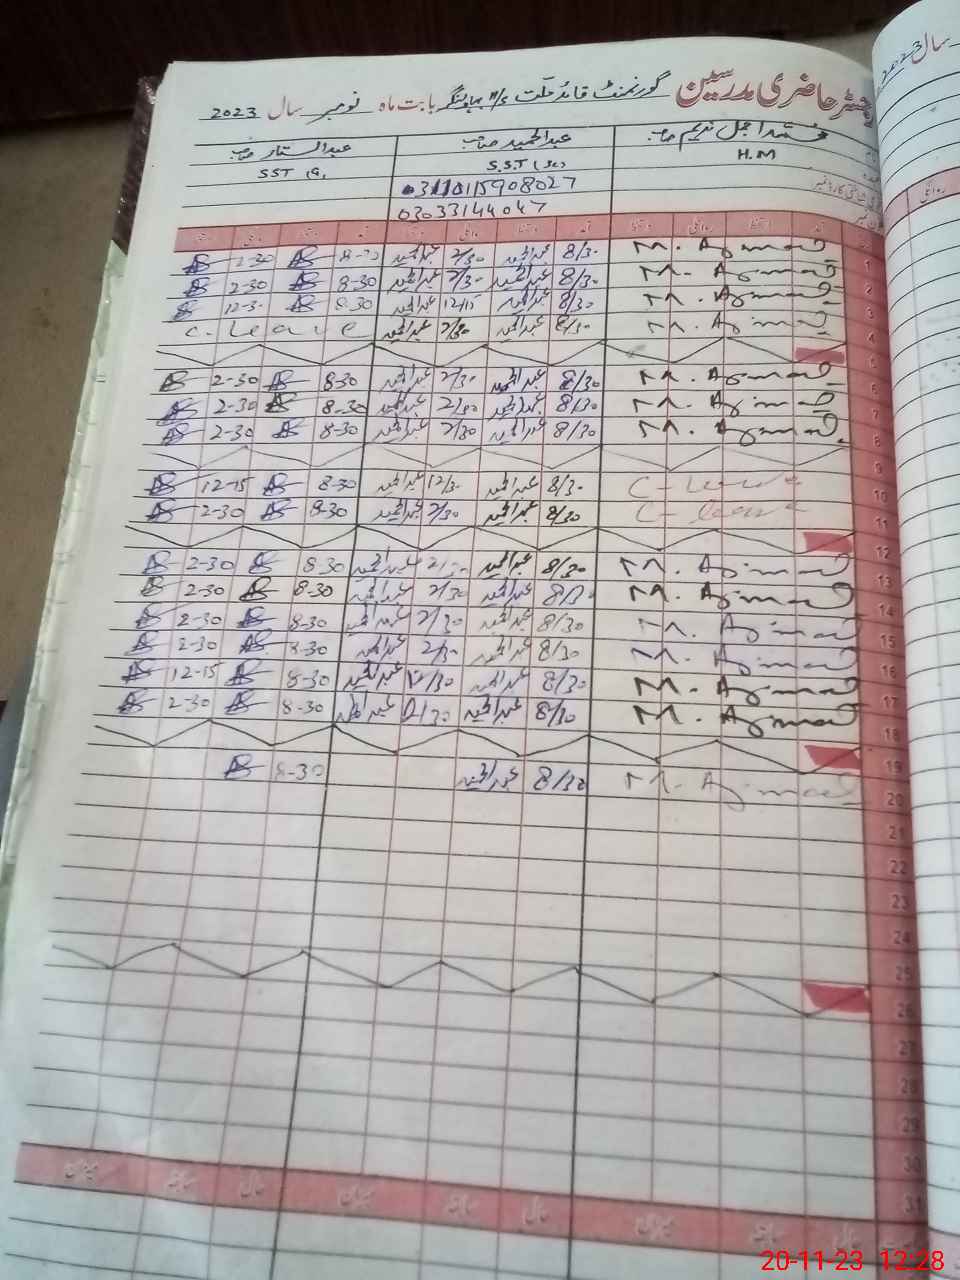 رجسٹر حاضری مدرسین گورنمنٹ قائد ملت بابت ماہ نومبر سال 2023
محمد اجمل ندیم صاحب عبدالحمید صاحب عبدالستار صاحب
H.M S.S.T (Sc) SST (G)
03033144047
آمد دستخط روانگی دستخط آمد دستخط روانگی دستخط
1 M. Ajmal 8/30 عبدالحمید 2/30 عبدالحمید 8-30 2-30
2 M. Ajmal 8/30 عبدالحمید 2/30 عبدالحمید 8-30 2-30
3 M. Ajmal 8/30 عبدالحمید 12/15 عبدالحمید 8-30 12-30
4 M. Ajmal 8/30 عبدالحمید 2/30 عبدالحمید C-Leave
5
6 M. Ajmal 8/30 عبدالحمید 2/30 عبدالحمید 8-30 2-30
7 M. Ajmal 8/30 عبدالحمید 2/30 عبدالحمید 8-30 2-30
8 M. Ajmal 8/30 عبدالحمید 2/30 عبدالحمید 8-30 2-30
9
10 C-Leave 8/30 عبدالحمید 12/30 عبدالحمید 8-30 12-15
11 C-Leave 8/30 عبدالحمید 2/30 عبدالحمید 8-30 2-30
12
13 M. Ajmal 8/30 عبدالحمید 2/30 عبدالحمید 8-30 2-30
14 M. Ajmal 8/30 عبدالحمید 2/30 عبدالحمید 8-30 2-30
15 M. Ajmal 8/30 عبدالحمید 2/30 عبدالحمید 8-30 2-30
16 M. Ajmal 8/30 عبدالحمید 2/30 عبدالحمید 8-30 2-30
17 M. Ajmal 8/30 عبدالحمید 12/30 عبدالحمید 8-30 12-15
18 M. Ajmal 8/30 عبدالحمید 2/30 عبدالحمید 8-30 2-30
19
20 M. Ajmal 8/30 عبدالحمید 8-30
21
22
23
24
25
26
27
28
29
30
31
حال سابقہ میزان حال سابقہ میزان حال سابقہ میزان
سال 2023
روانگی
20-11-23 12:28